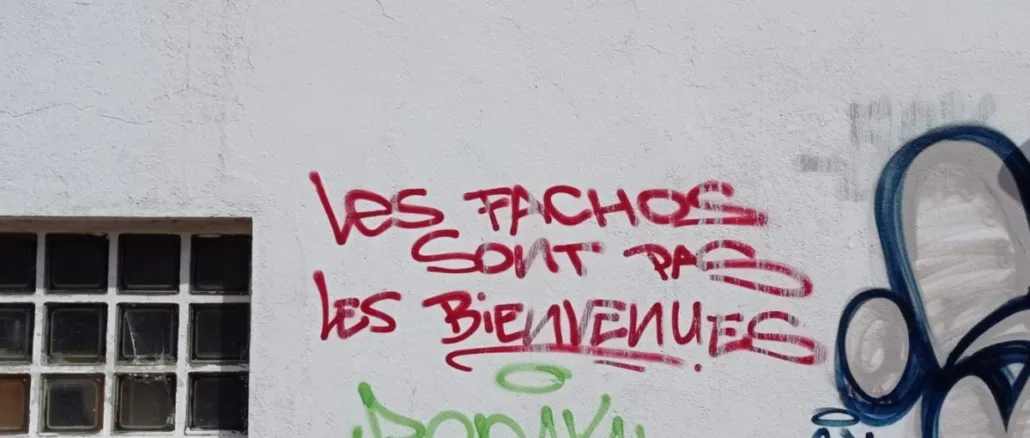 Les FACHOS
SONT PAS
Les BiENVENUES